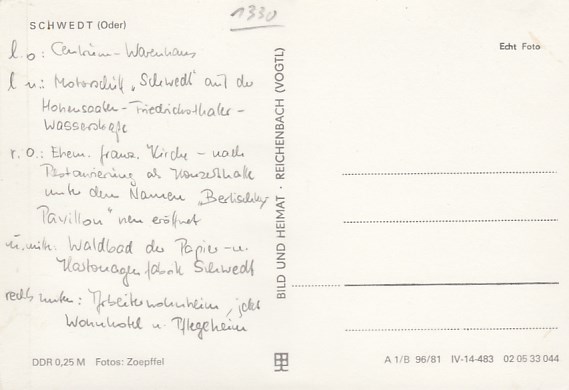 SCHWEDT (Oder)
1330
Echt Foto
l. o.: Centrum-Warenhaus
l u.: Motorschiff „Schwedt" auf der
Hohensaaten-Friedrichsthaler-
Wasserstraße
r. o.: Ehem. franz. Kirche - nach
Restaurierung als Konzerthalle
unter dem Namen „Berlischky
Pavillon" neu eröffnet
u. mitte: Waldbad der Papier- u.
Kartonagenfabrik Schwedt
rechts unten: Arbeiterwohnheim, jetzt
Wohnhotel u. Pflegeheim
BILD UND HEIMAT · REICHENBACH (VOGTL)
DDR 0,25 M Fotos: Zoepffel
A 1/B 96/81 IV-14-483 02 05 33 044